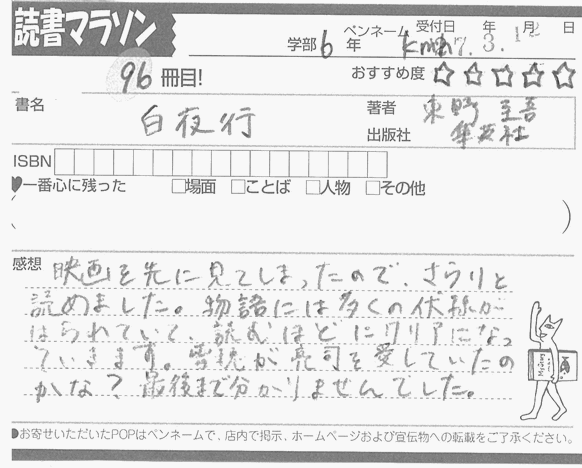 読書マラソン
学部6年 ペンネーム 受付日 年 月 日
7.3.12
96冊目!
おすすめ度☆☆☆☆☆
書名 白夜行
著者 東野圭吾
出版社 集英社
ISBN
♥一番心に残った □場面 □ことば □人物 □その他
( )
感想 映画を先に見てしまったので、さらりと
読めました。物語には多くの伏線が
はられていて、読むほどにクリアになっ
ていきます。雪穂が亮司を愛していたの
かな?最後まで分かりませんでした。
●お寄せいただいたPOPはペンネームで、店内で掲示、ホームページおよび宣伝物への転載をご了承ください。